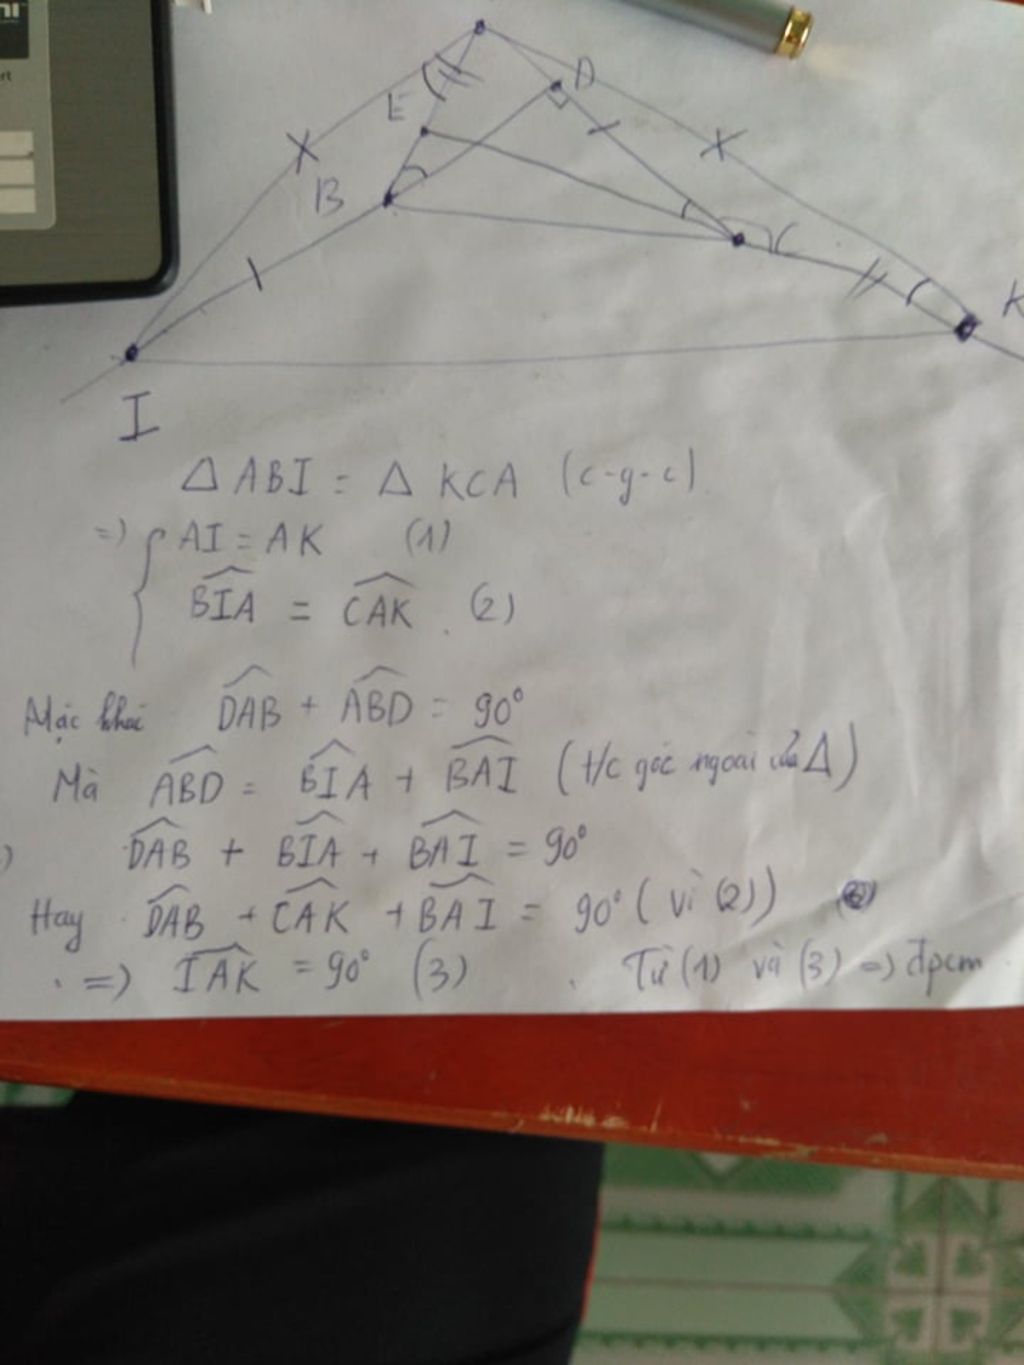 E
D
B
C
K
I
Δ ABI = Δ KCA (c-g-c)
=> { AI = AK (1)
BIA = CAK . (2)
Mặc khác DAB + ABD = 90°
Mà ABD = BIA + BAI (t/c góc ngoài của Δ)
) DAB + BIA + BAI = 90°
Hay DAB + CAK + BAI = 90° (vì (2))
=> IAK = 90° (3) Từ (1) và (3) => đpcm